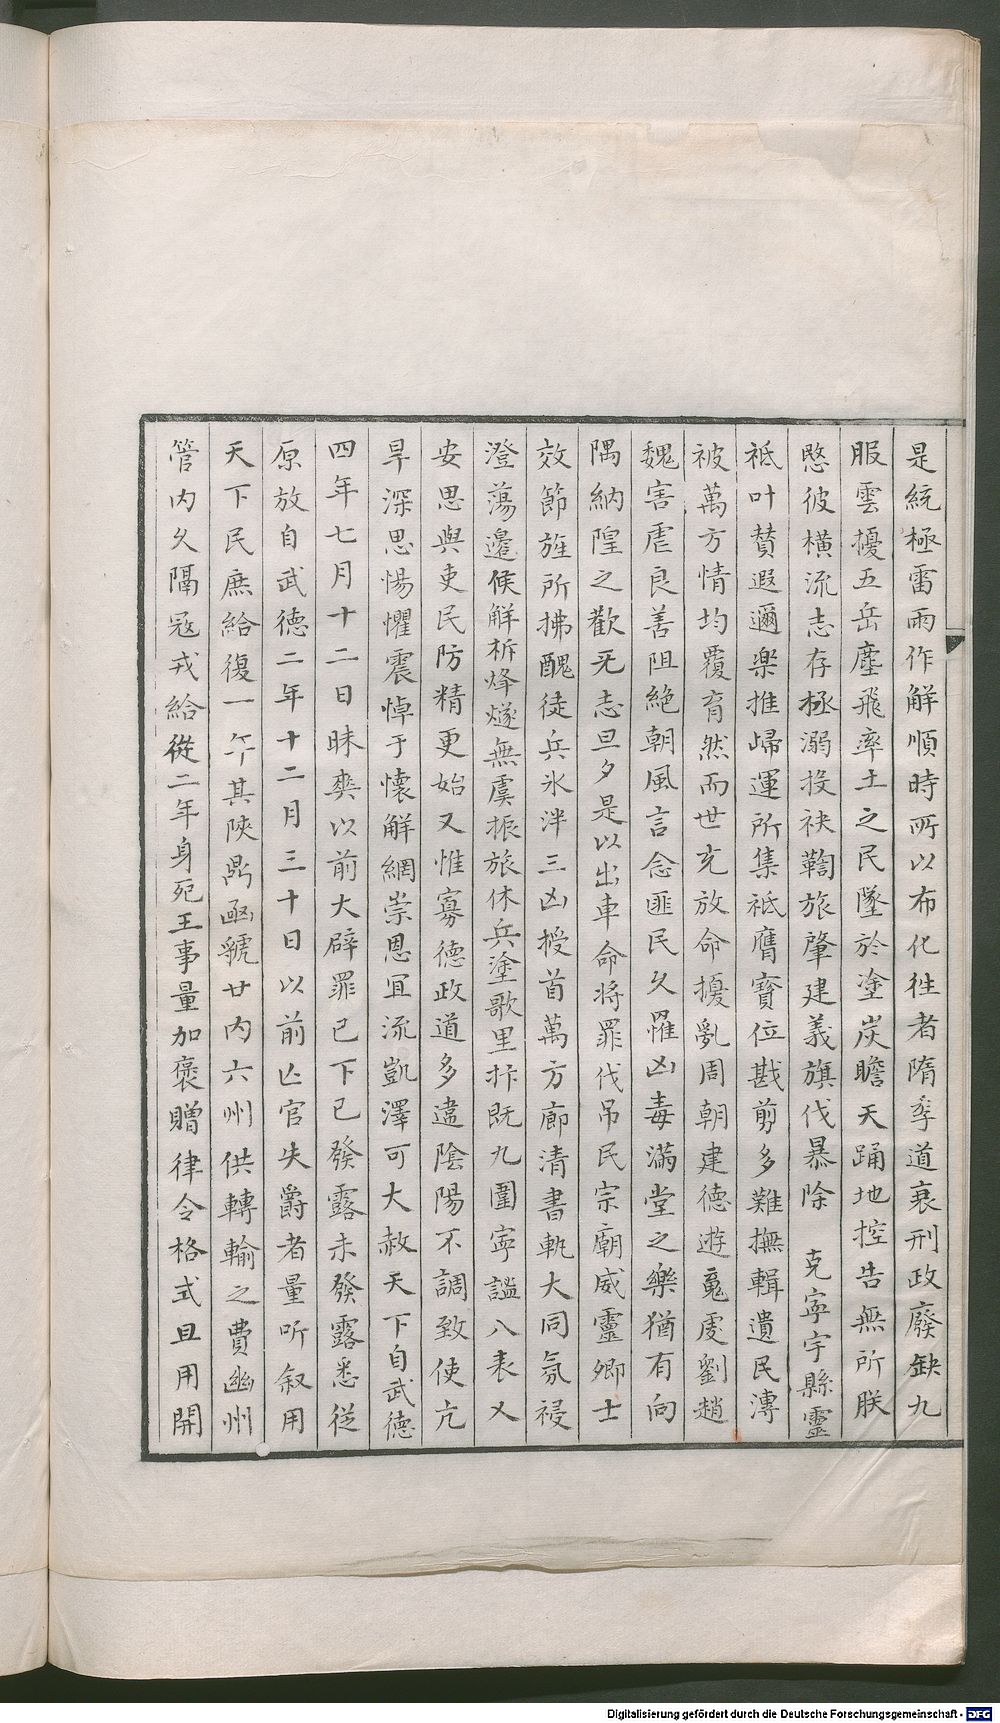 是統極雷雨作解順時所以布化徃者隋季道衰刑政廢缺九
服雲擾五岳塵飛率土之民墜於塗炭瞻天踊地控告無所朕
愍彼橫流志存極溺投袂鞫旅肇建義旗伐暴除 克寧宇縣靈
祇叶賛遐邇樂推㱕運所集祇膺寶位戡剪多難撫輯遺民漙
被萬方情均覆育然而世充放命擾亂周朝建德遊䰟虔劉趙
魏害虐良善阻絶朝風言念匪民久罹凶毒滿堂之樂猶有向
隅納隍之歡旡志旦夕是以出車命將罪伐吊民宗廟威靈卿士
效節旌所拂醜徒兵氷泮三凶授首萬方廓清書軌大同氛祲
澄蕩邉候解柝烽燧無虞振旅休兵塗歌里抃既九圍寜謐八表乂
安思與吏民防精更始又惟寡德政道多違陰陽不調致使亢
旱深思惕懼震悼于懷解網崇恩宜流凱澤可大赦天下自武德
四年七月十二日昧爽以前大辟罪已下已發露未發露悉従
原放自武德二年十二月三十日以前亾官失爵者量听叙用
天下民庶給復一年其陝鼎函虢廿内六州供轉輸之費幽州
管内久隔冦戎給從二年身死王事量加褒贈律令格式且用開
Digitalisierung gefördert durch die Deutsche Forschungsgemeinschaft - DFG